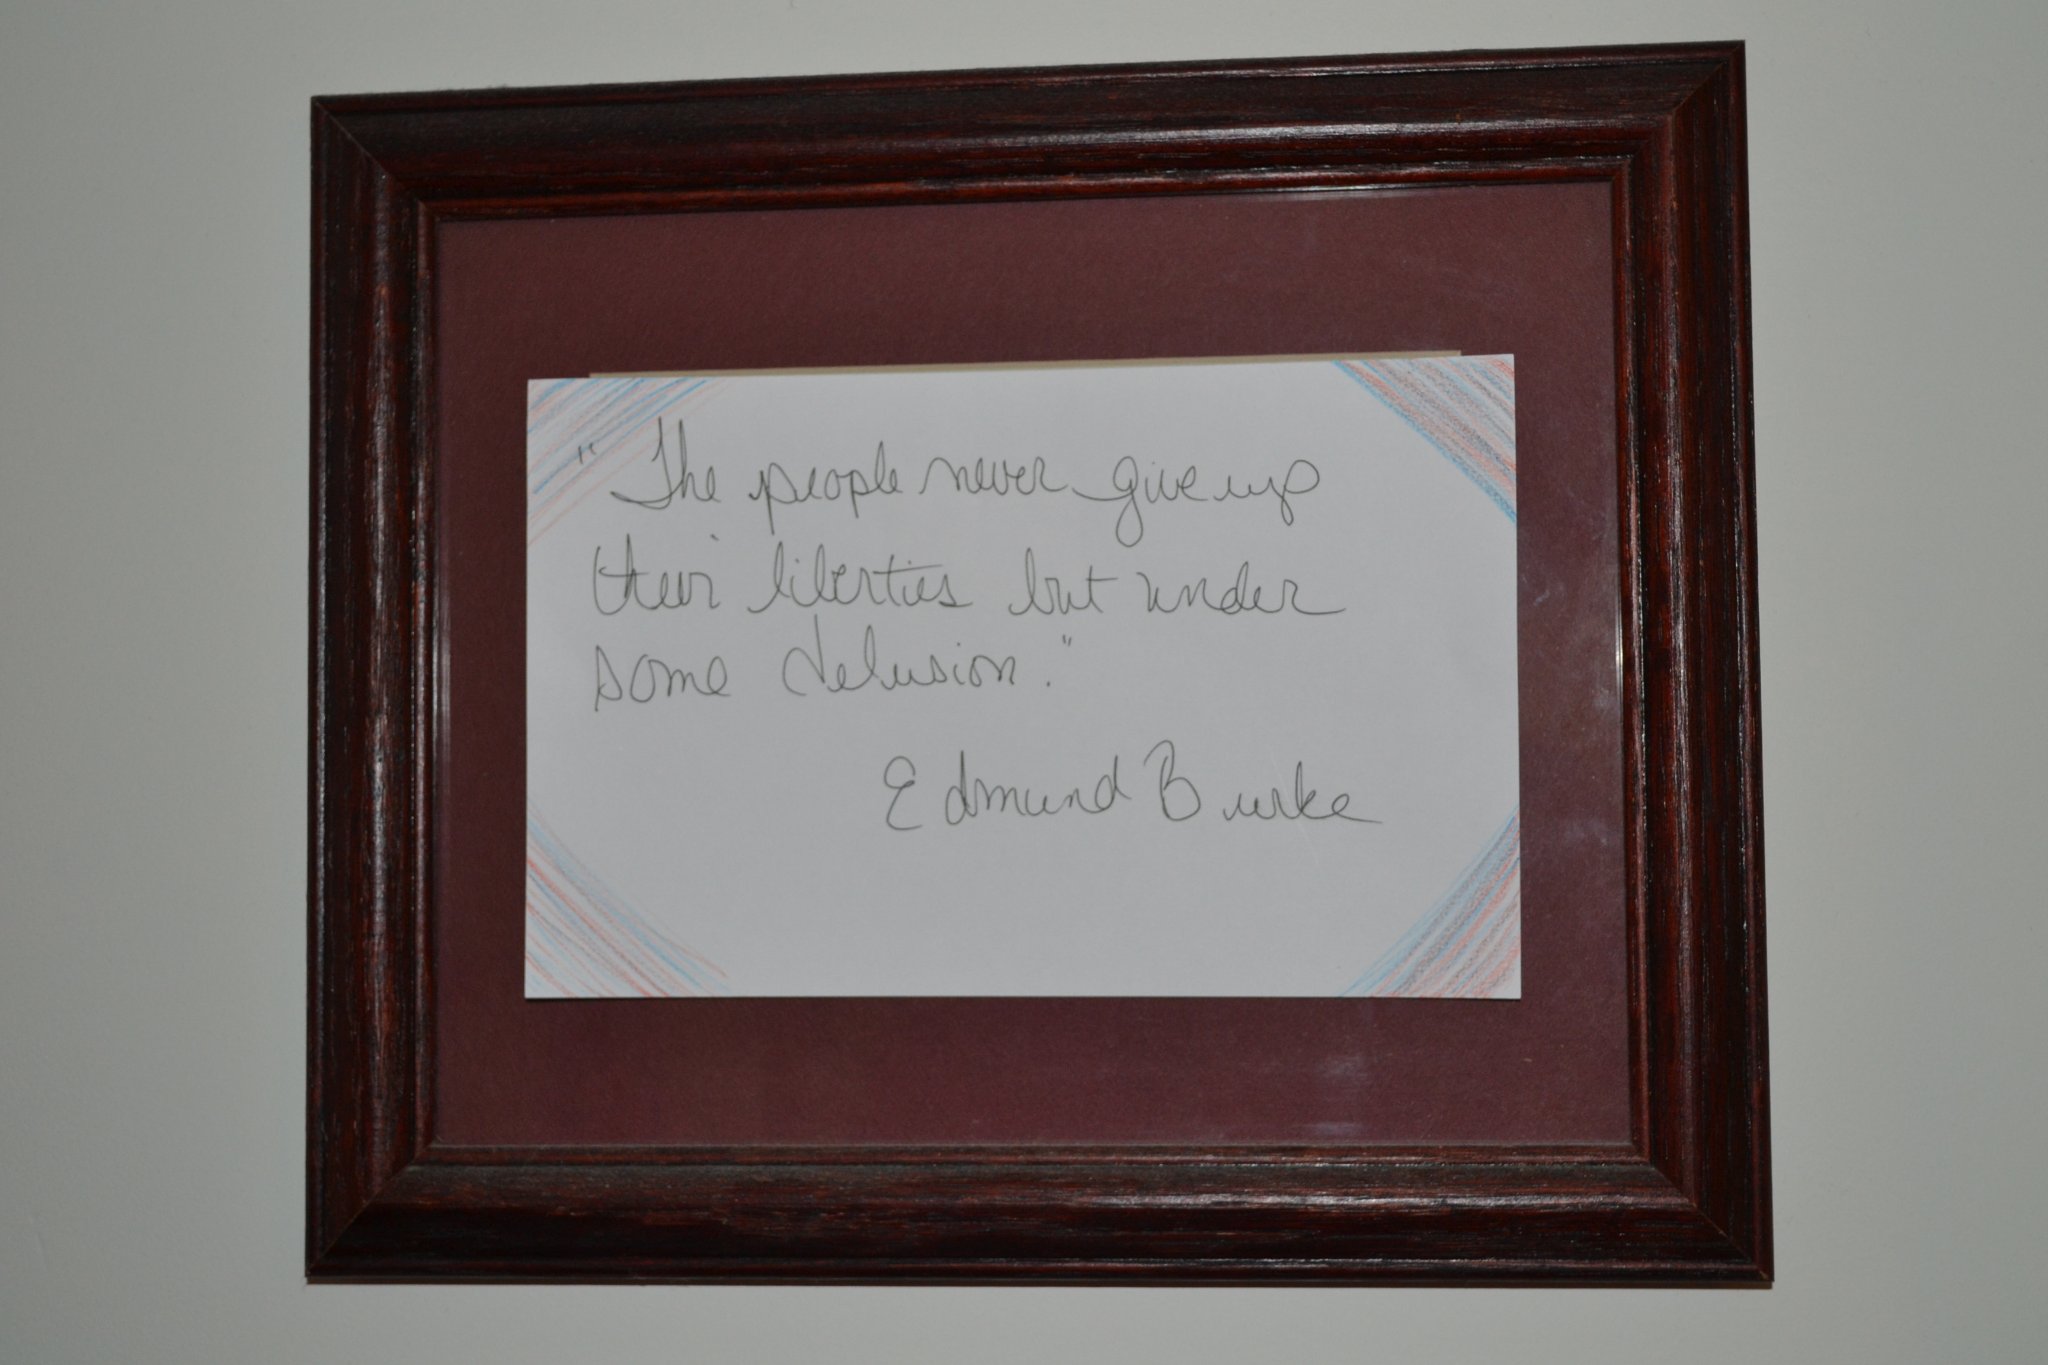 "The people never give up
their liberties but under
some delusion."
Edmund Burke